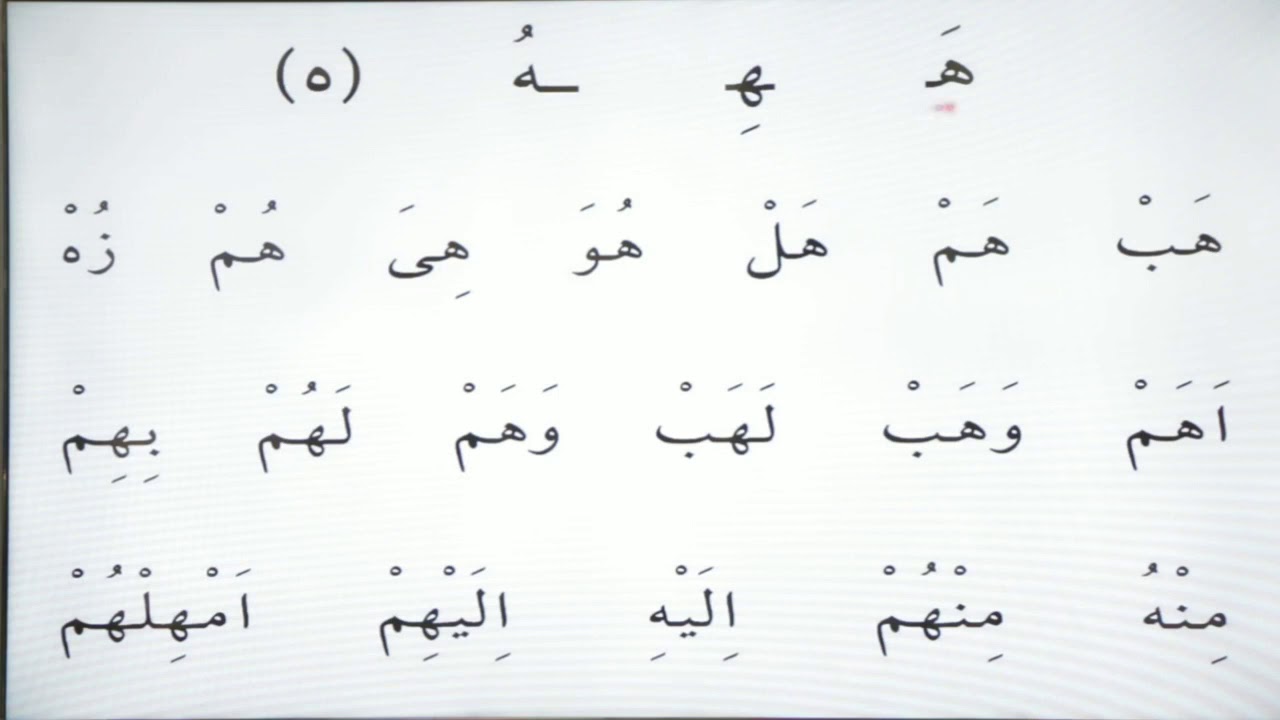 هَـ ـهِـ ـهُ (ه)
هَبْ هَمْ هَلْ هُوَ هِىَ هُمْ زُهْ
اَهَمْ وَهَبْ لَهَبْ وَهَمْ لَهُمْ بِهِمْ
مِنْهُ مِنْهُمْ اِلَيْهِ اِلَيْهِمْ اَمْهِلْهُمْ